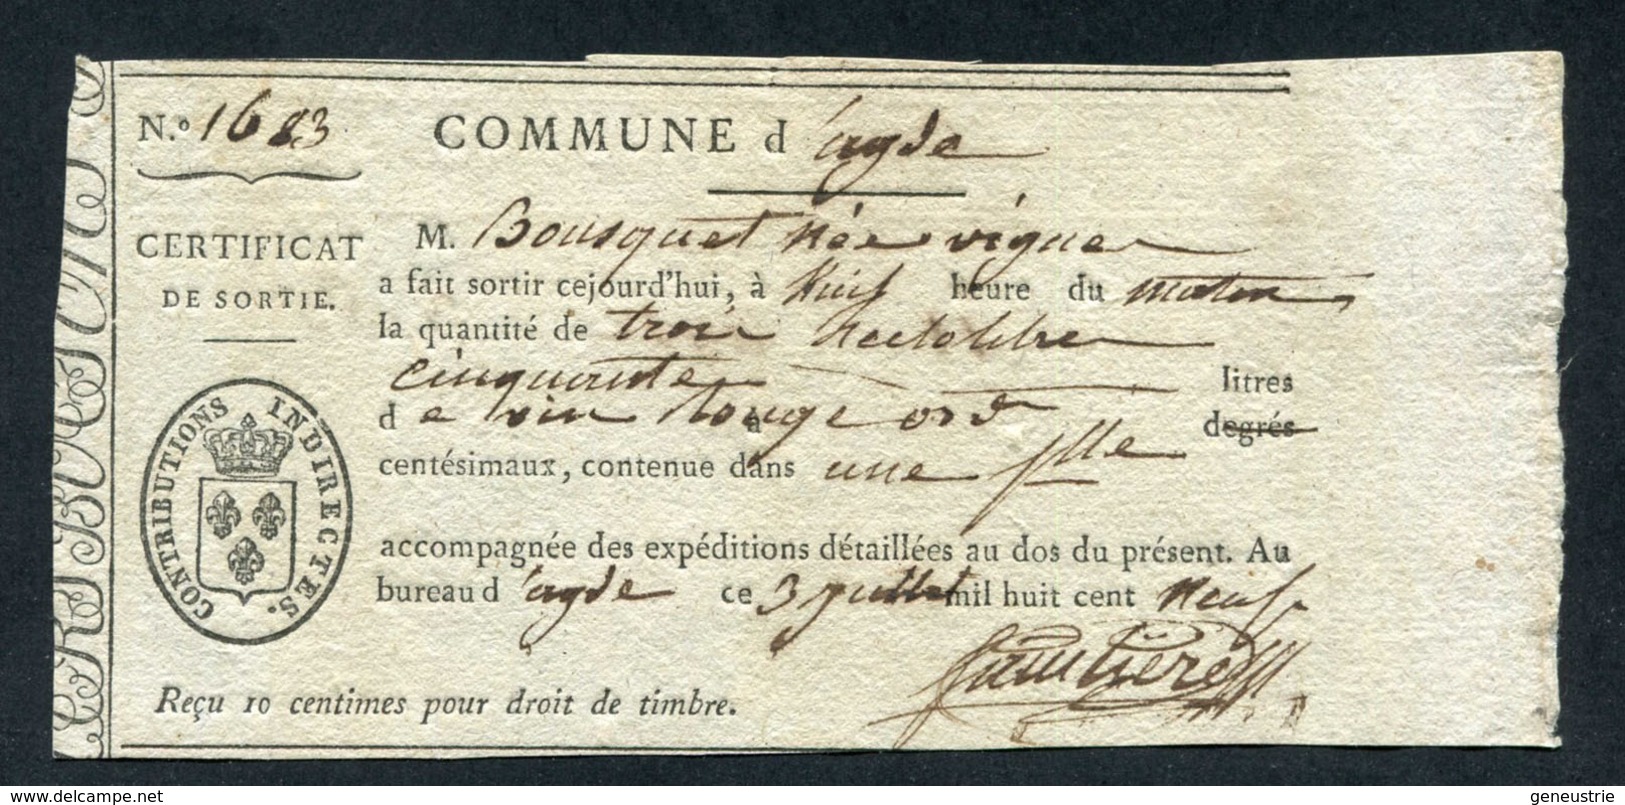 N.º 1683
COMMUNE d'agde
CERTIFICAT
DE SORTIE.
M. Bousquet née viguer
a fait sortir cejourd'hui, à neuf heure du matin
la quantité de trois hectolitre
cinquante litres
de vin rouge ord à degrés
centésimaux, contenue dans une
accompagnée des expéditions détaillées au dos du présent. Au
bureau d'agde ce 3 juillet mil huit cent neuf
CONTRIBUTIONS INDIRECTES.
Reçu 10 centimes pour droit de timbre.
www.delcampe.net
geneustrie